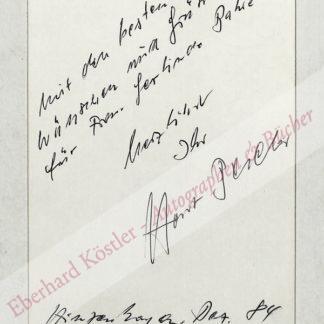 Mit den besten
Wünschen und Grüßen
für Frau Gerlinde
herzlichst
Ihr
Horst
Dez. 84
Eberhard Köstler - Autographen & Bücher